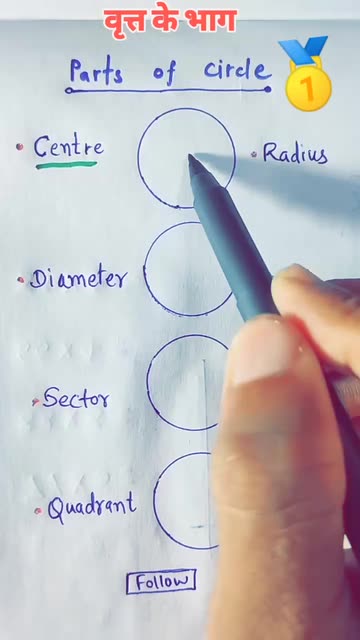 वृत्त के भाग
Parts of circle
1
Centre
Radius
Diameter
Sector
Quadrant
Follow